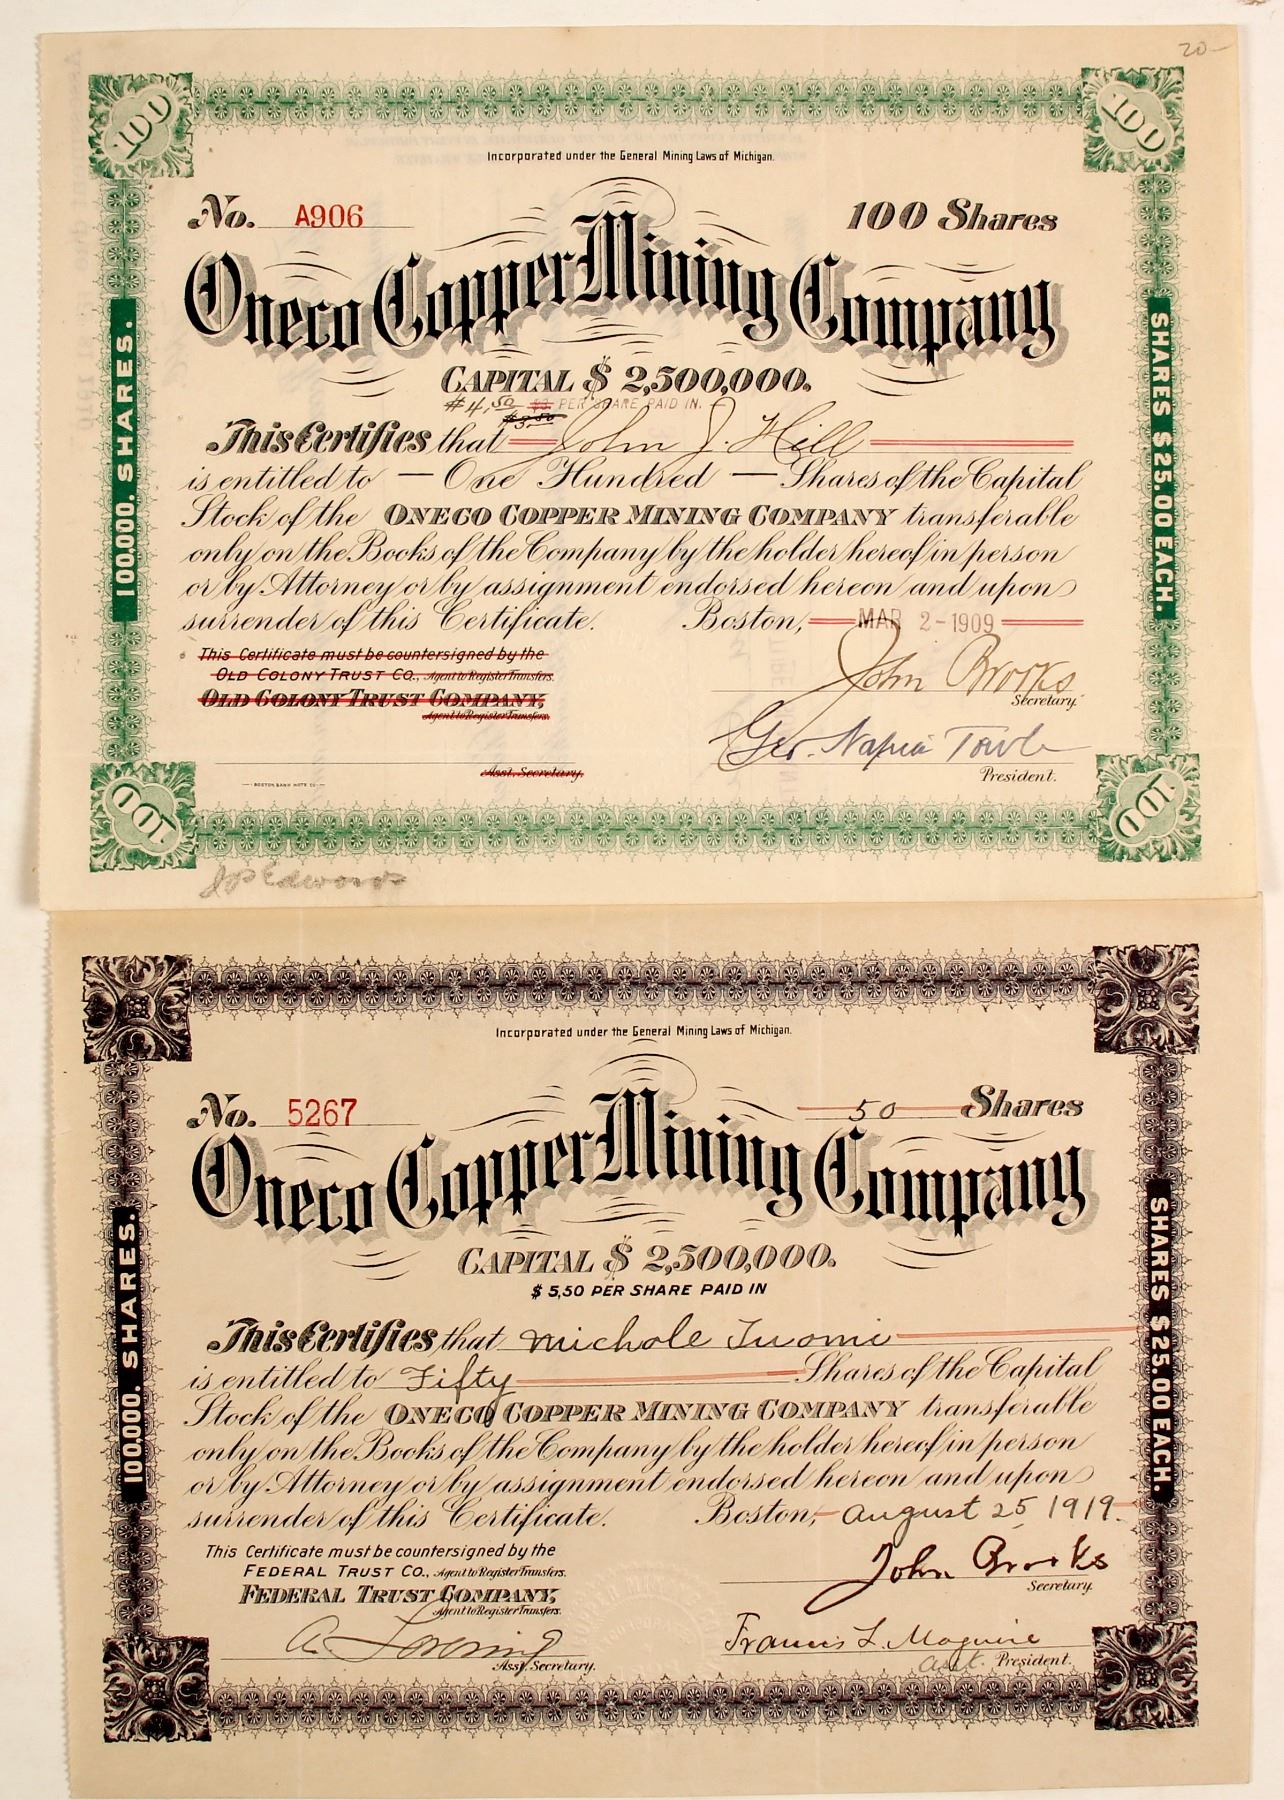 20-
100
100
Incorporated under the General Mining Laws of Michigan.
No. A906
100 Shares
Oneco Copper Mining Company
CAPITAL $ 2,500,000.
$4.50 $3. PER SHARE PAID IN.
$3.50
This Certifies that John J. Hill
is entitled to — One Hundred — Shares of the Capital
Stock of the ONECO COPPER MINING COMPANY transferable
only on the Books of the Company by the holder hereof in person
or by Attorney or by assignment endorsed hereon and upon
surrender of this Certificate. Boston, MAR 2-1909
This Certificate must be countersigned by the
OLD COLONY TRUST CO., Agent to Register Transfers.
OLD COLONY TRUST COMPANY,
Agent to Register Transfers.
Asst. Secretary.
John Brooks
Secretary.
Geo. Napier Towle
President.
BOSTON BANK NOTE CO.
100,000. SHARES.
SHARES $25.00 EACH.
100
100
J P Edwards
Incorporated under the General Mining Laws of Michigan.
No. 5267
50 Shares
Oneco Copper Mining Company
CAPITAL $ 2,500,000.
$ 5,50 PER SHARE PAID IN
This Certifies that Michole Tuomi
is entitled to Fifty Shares of the Capital
Stock of the ONECO COPPER MINING COMPANY transferable
only on the Books of the Company by the holder hereof in person
or by Attorney or by assignment endorsed hereon and upon
surrender of this Certificate. Boston, August 25, 1919.
This Certificate must be countersigned by the
FEDERAL TRUST CO., Agent to Register Transfers.
FEDERAL TRUST COMPANY,
Agent to Register Transfers.
A. Loreing
Asst. Secretary.
John Brooks
Secretary.
Francis L. Maguire
asst. President.
100,000. SHARES.
SHARES $25.00 EACH.